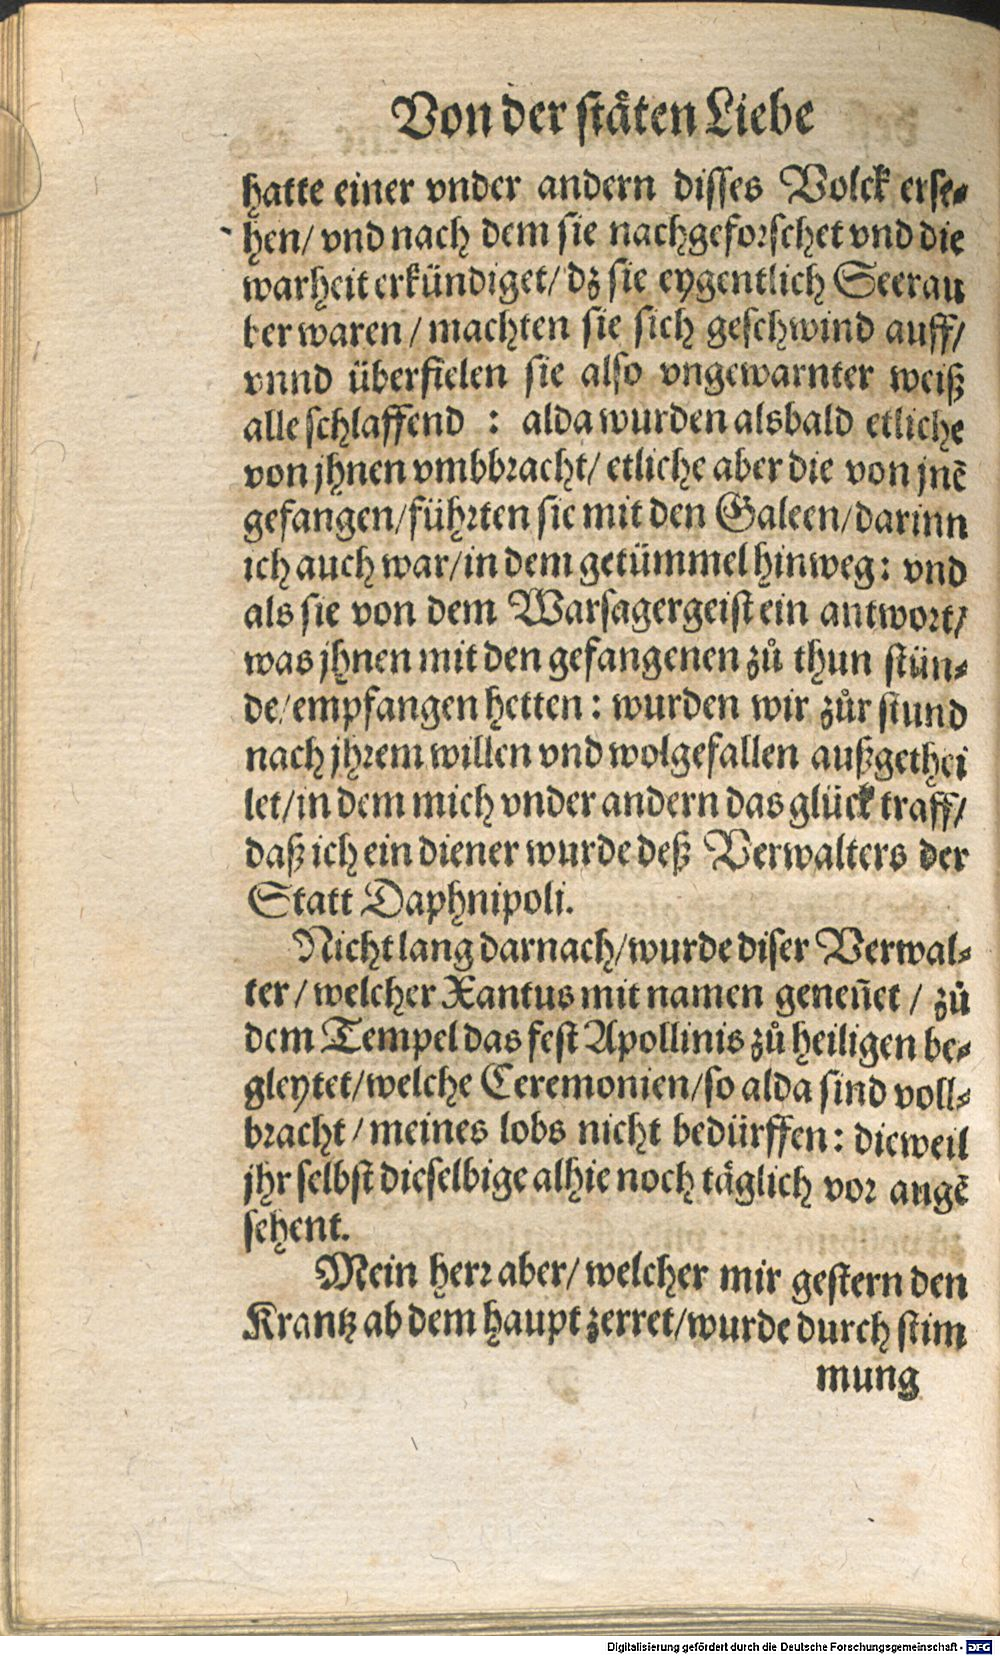 Von der ståten Liebe
hatte einer vnder andern disses Volck erse-
hen/ vnd nach dem sie nachgeforschet vnd die
warheit erkündiget/ dz sie eygentlich Seerau
ber waren / machten sie sich geschwind auff/
vnnd überfielen sie also vngewarnter weiß
alle schlaffend : alda wurden alsbald etliche
von jhnen vmbbracht/ etliche aber die von jnē
gefangen/führten sie mit den Galeen/darinn
ich auch war/in dem getümmel hinweg: vnd
als sie von dem Warsagergeist ein antwort/
was jhnen mit den gefangenen zů thun stün-
de/empfangen hetten : wurden wir zůr stund
nach jhrem willen vnd wolgefallen außgethei
let/in dem mich vnder andern das glück traff/
daß ich ein diener wurde deß Verwalters der
Statt Daphnipoli.
Nicht lang darnach/wurde diser Verwal-
ter / welcher Xantus mit namen geneñet / zů
dem Tempel das fest Apollinis zů heiligen be-
gleytet/welche Ceremonien/so alda sind voll-
bracht / meines lobs nicht bedürffen : dieweil
jhr selbst dieselbige alhie noch täglich vor augē
sehent.
Mein herr aber/ welcher mir gestern den
Krantz ab dem haupt zerret/wurde durch stim
mung
Digitalisierung gefördert durch die Deutsche Forschungsgemeinschaft - DFG